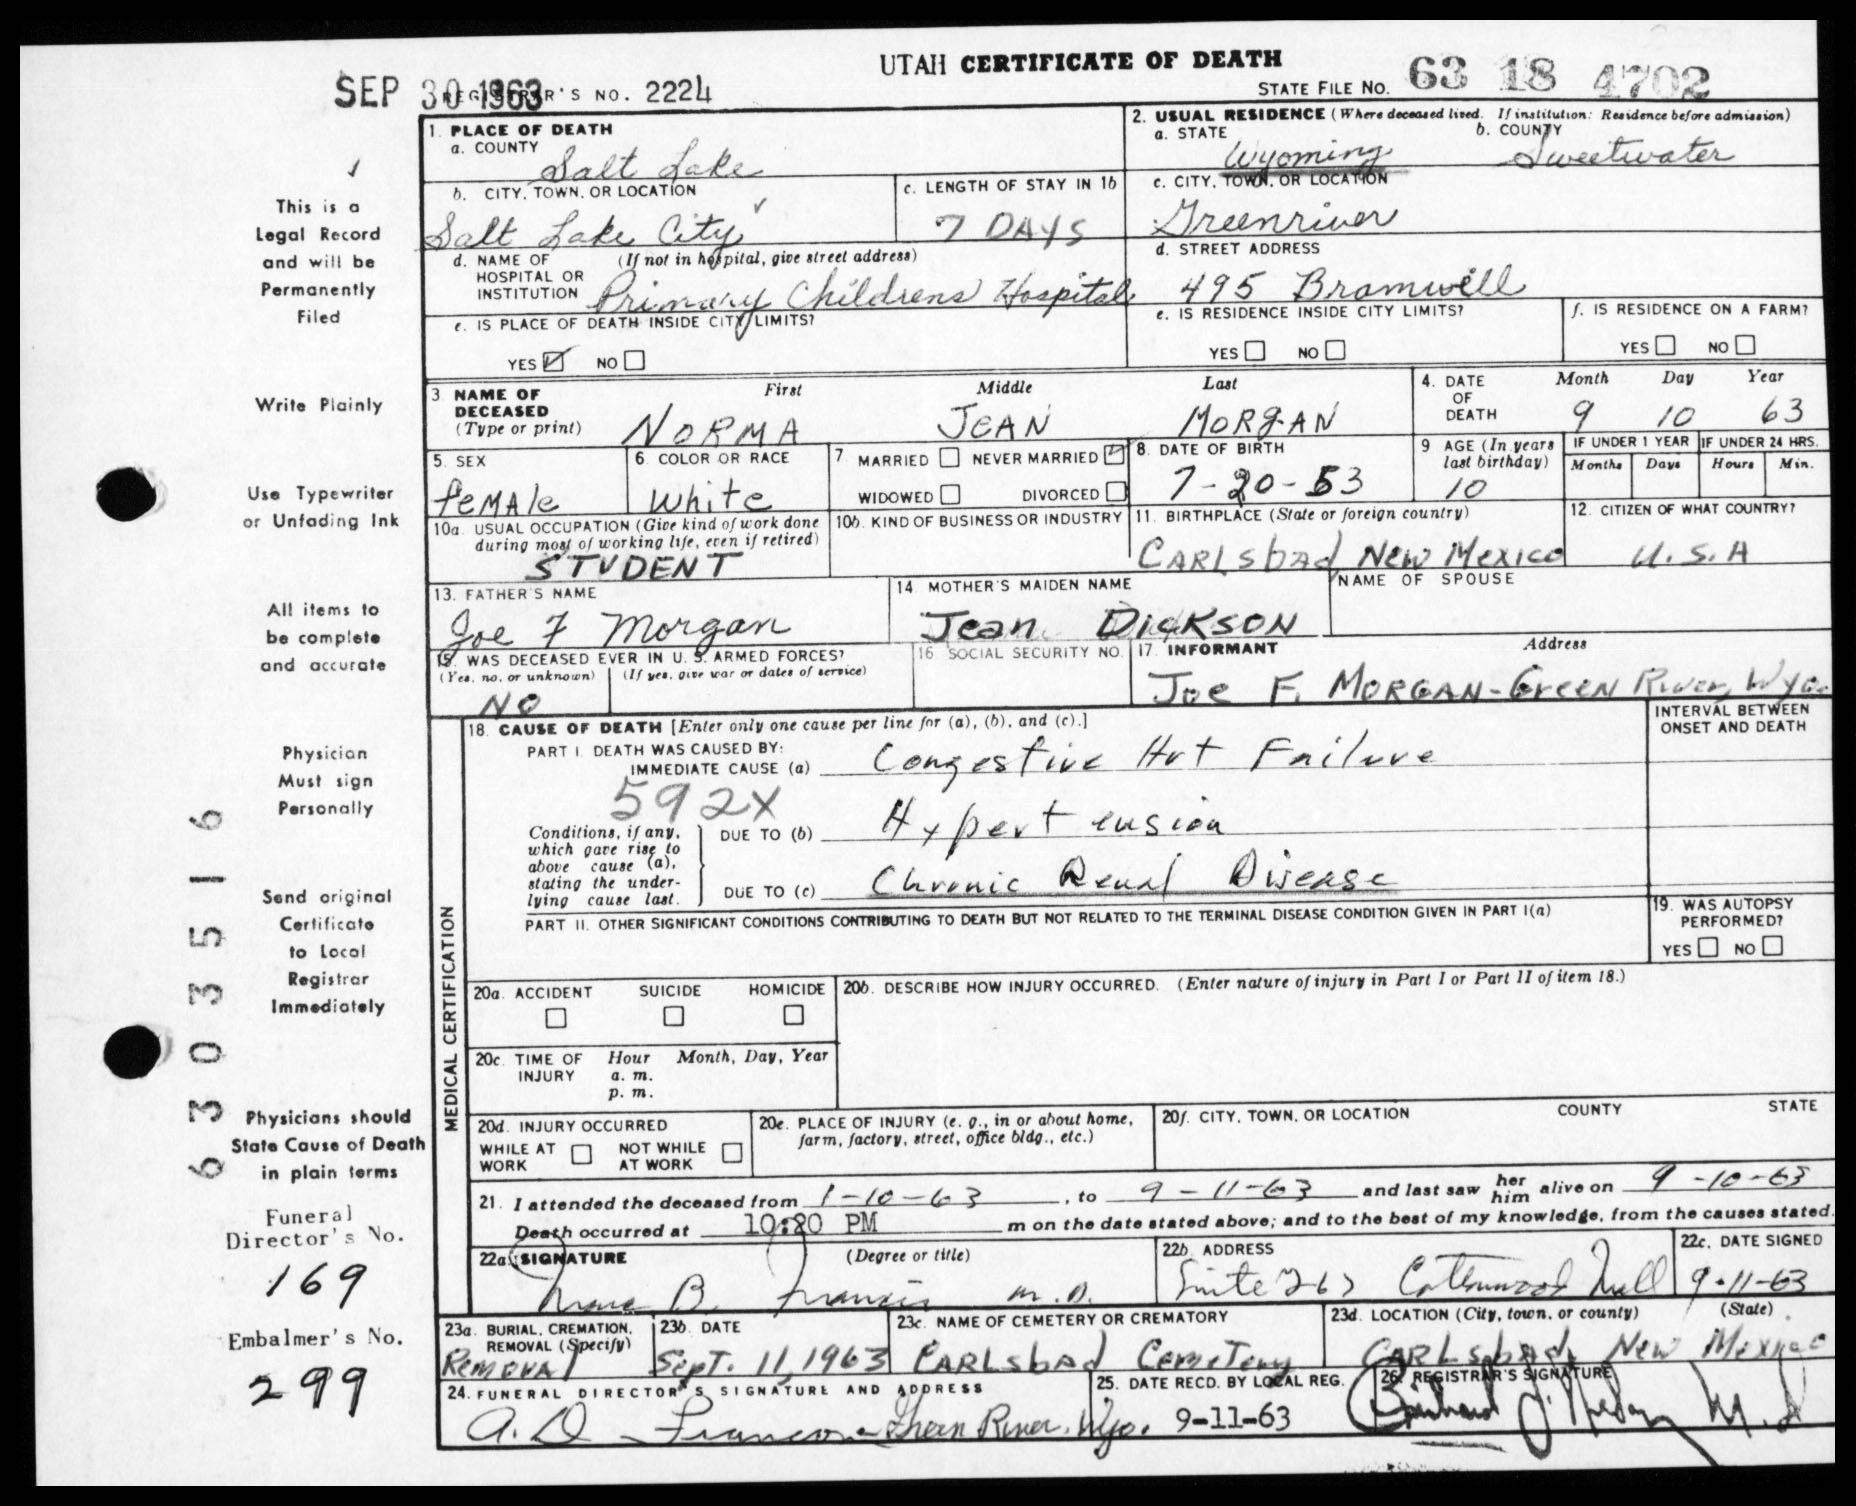 UTAH CERTIFICATE OF DEATH
SEP 30 1963 REGISTRAR'S NO. 2224 STATE FILE NO. 63 18 4702
This is a
Legal Record
and will be
Permanently
Filed
Write Plainly
Use Typewriter
or Unfading Ink
All items to
be complete
and accurate
Physician
Must sign
Personally
Send original
Certificate
to Local
Registrar
Immediately
Physicians should
State Cause of Death
in plain terms
Funeral
Director's No.
169
Embalmer's No.
299
63035 16
1. PLACE OF DEATH
a. COUNTY
Salt Lake
2. USUAL RESIDENCE (Where deceased lived. If institution: Residence before admission)
a. STATE b. COUNTY
Wyoming Sweetwater
b. CITY, TOWN, OR LOCATION
Salt Lake City
c. LENGTH OF STAY IN 1b
7 DAYS
c. CITY, TOWN, OR LOCATION
Greenriver
d. NAME OF (If not in hospital, give street address)
HOSPITAL OR
INSTITUTION Primary Childrens Hospital
d. STREET ADDRESS
495 Bramwell
e. IS PLACE OF DEATH INSIDE CITY LIMITS?
YES NO
e. IS RESIDENCE INSIDE CITY LIMITS?
YES NO
f. IS RESIDENCE ON A FARM?
YES NO
3. NAME OF First Middle Last
DECEASED
(Type or print) NORMA JEAN MORGAN
4. DATE Month Day Year
OF
DEATH 9 10 63
5. SEX
FEMAle
6. COLOR OR RACE
White
7 MARRIED NEVER MARRIED
WIDOWED DIVORCED
8. DATE OF BIRTH
7-20-53
9 AGE (In years
last birthday)
10
IF UNDER 1 YEAR IF UNDER 24 HRS.
Months Days Hours Min.
10a. USUAL OCCUPATION (Give kind of work done
during most of working life, even if retired)
STUDENT
10b. KIND OF BUSINESS OR INDUSTRY
11. BIRTHPLACE (State or foreign country)
CARLSbAd New MexIco
12. CITIZEN OF WHAT COUNTRY?
U.S.A
13. FATHER'S NAME
Joe F Morgan
14 MOTHER'S MAIDEN NAME
Jean DICKSON
NAME OF SPOUSE
15. WAS DECEASED EVER IN U. S. ARMED FORCES?
(Yes, no, or unknown) (If yes, give war or dates of service)
NO
16 SOCIAL SECURITY NO.
17. INFORMANT Address
Joe F. MORGAN-Green River, Wyo.
MEDICAL CERTIFICATION
18. CAUSE OF DEATH [Enter only one cause per line for (a), (b), and (c).]
INTERVAL BETWEEN
ONSET AND DEATH
PART I. DEATH WAS CAUSED BY:
IMMEDIATE CAUSE (a) Congestive Hrt Failure
592X
Conditions, if any,
which gave rise to
above cause (a),
stating the under-
lying cause last.
DUE TO (b) Hypertension
DUE TO (c) Chronic Renal Disease
PART II. OTHER SIGNIFICANT CONDITIONS CONTRIBUTING TO DEATH BUT NOT RELATED TO THE TERMINAL DISEASE CONDITION GIVEN IN PART I(a)
19. WAS AUTOPSY
PERFORMED?
YES NO
20a. ACCIDENT SUICIDE HOMICIDE
20b. DESCRIBE HOW INJURY OCCURRED. (Enter nature of injury in Part I or Part II of item 18.)
20c. TIME OF Hour Month, Day, Year
INJURY a. m.
p. m.
20d. INJURY OCCURRED
WHILE AT NOT WHILE
WORK AT WORK
20e. PLACE OF INJURY (e. g., in or about home,
farm, factory, street, office bldg., etc.)
20f. CITY, TOWN, OR LOCATION COUNTY STATE
21. I attended the deceased from 1-10-63, to 9-11-63 and last saw her him alive on 9-10-63
Death occurred at 10:20 PM m on the date stated above; and to the best of my knowledge, from the causes stated.
22a. SIGNATURE (Degree or title)
B. Francis M.D.
22b. ADDRESS
Suite 267 Cottonwood Mall
22c. DATE SIGNED
9-11-63
23a. BURIAL, CREMATION,
REMOVAL (Specify)
Removal
23b. DATE
Sept. 11, 1963
23c. NAME OF CEMETERY OR CREMATORY
CARLsbAd Cemetery
23d. LOCATION (City, town, or county) (State)
CARLsbAd, New Mexico
24. FUNERAL DIRECTOR'S SIGNATURE AND ADDRESS
A. D. Green River, Wyo.
25. DATE RECD. BY LOCAL REG.
9-11-63
26. REGISTRAR'S SIGNATURE
M.D